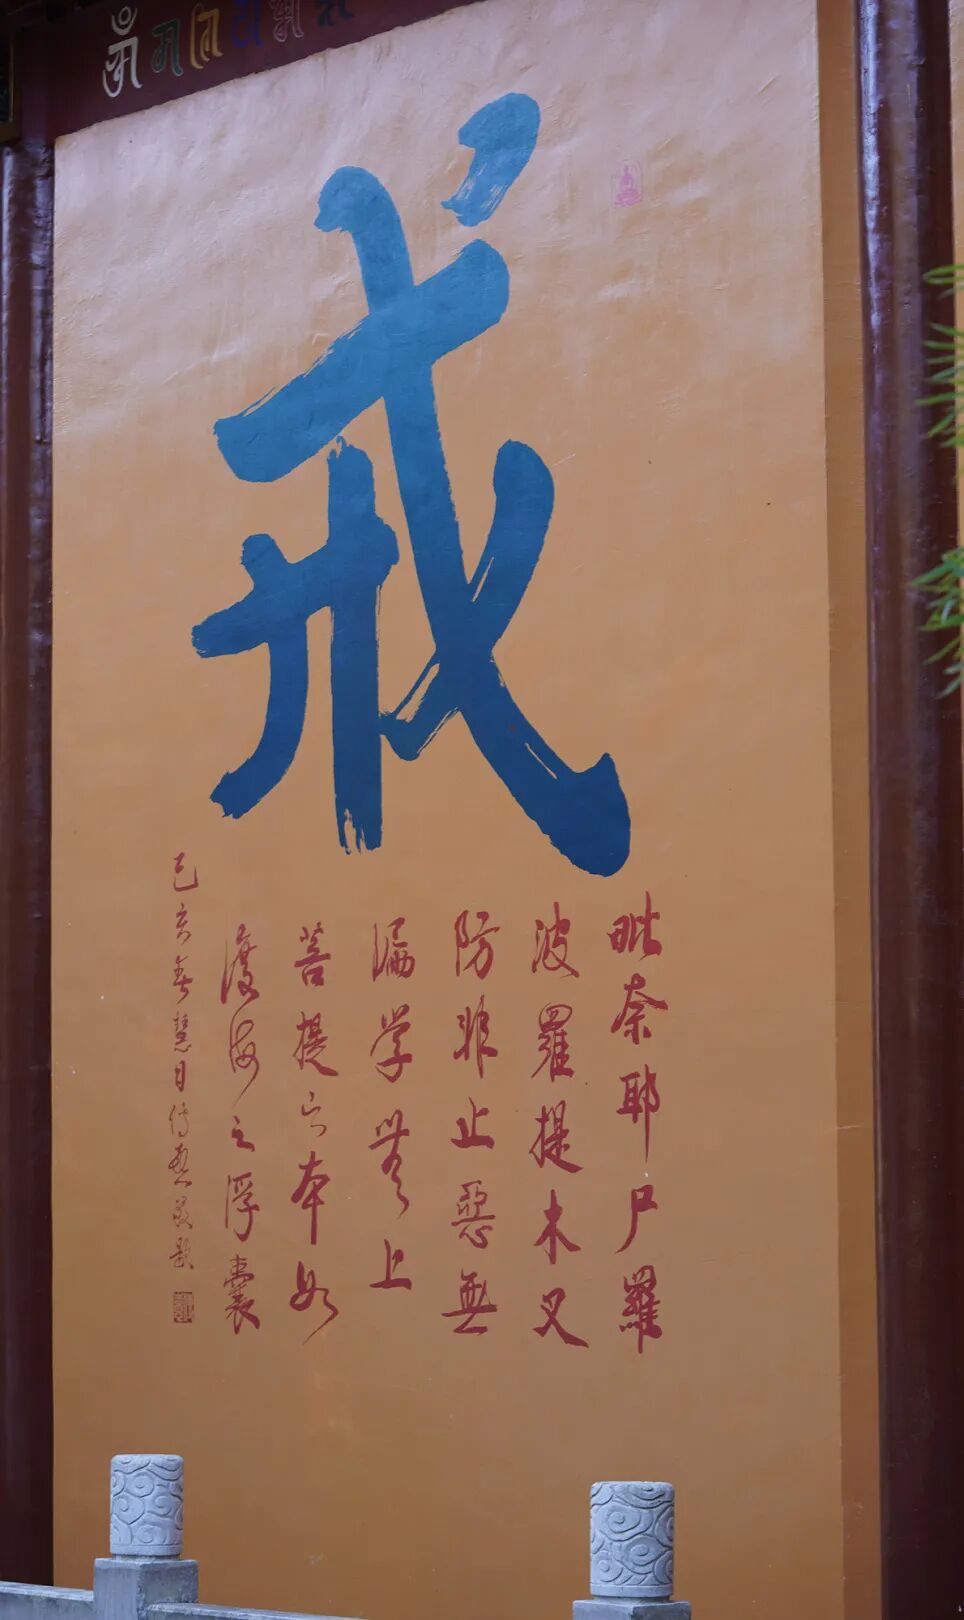 戒
毗奈耶尸羅
波羅提木叉
防非止惡無
漏学無上
菩提之本如
渡海之浮囊
己亥春慧日传印敬题